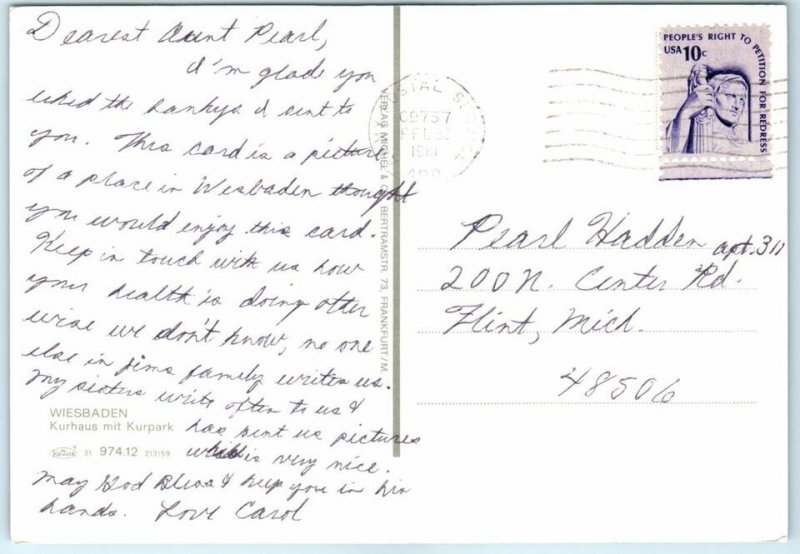 Dearest Aunt Pearl,
I'm glade you
liked the hankys I sent to
you. This card is a picture
of a place in Wesbaden thought
you would enjoy this card.
Keep in touch with us how
your health is doing other
wise we don't know, no one
else in Jims family writes us.
My sisters write often to us &
has sent us pictures
is very nice.
May God Bless & keep you in his
hands. Love Carol
WIESBADEN
Kurhaus mit Kurpark
31 974.12 213159
VERLAG MICHEL & C BERTRAMSTR. 73, FRANKFURT/M.
POSTAL
09757
FEB
1981
PEOPLE'S RIGHT TO PETITION FOR REDRESS
USA 10c
Pearl Hadden apt. 311
200 N. Center Rd.
Flint, Mich.
48506